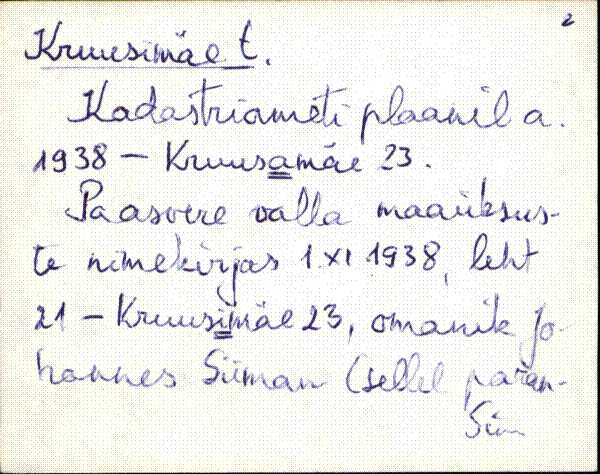 2
Kruusimäe t.
Kadastriameti plaanil a.
1938 – Kruusamäe 23.
Paasvere valla maaüksus-
te nimekirjas 1 XI 1938, leht
21 – Kruusimäe 23, omanik Jo-
hannes Siiman (sellel paran-